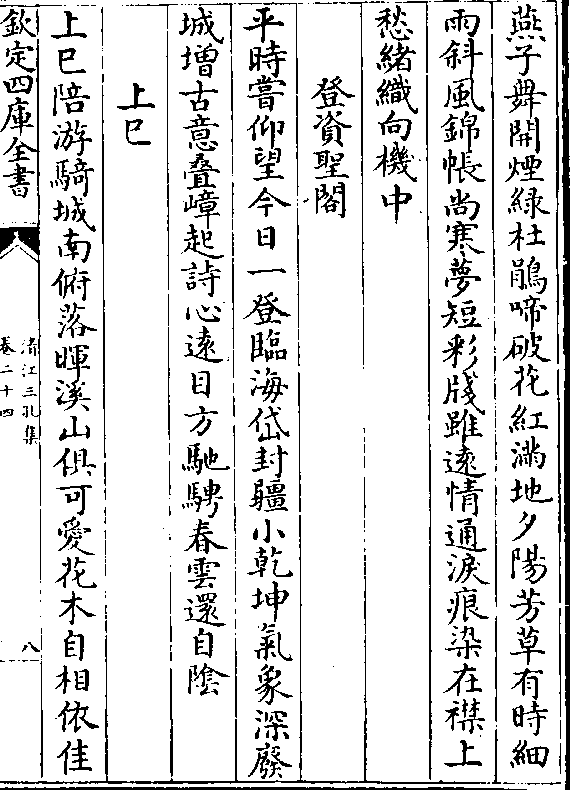 燕子舞開煙綠杜鵑啼破花紅滿地夕陽芳草有時細
雨斜風錦帳尚寒夢短彩牋雖遠情通淚痕染在襟上
愁緒織向機中
登資聖閣
平時嘗仰望今日一登臨海岱封疆小乾坤氣象深廢
城增古意疊嶂起詩心遠目方馳騁春雲還自陰
上巳
上巳陪游騎城南俯落暉溪山俱可愛花木自相依佳
欽定四庫全書
清江三孔集
卷二十四
八